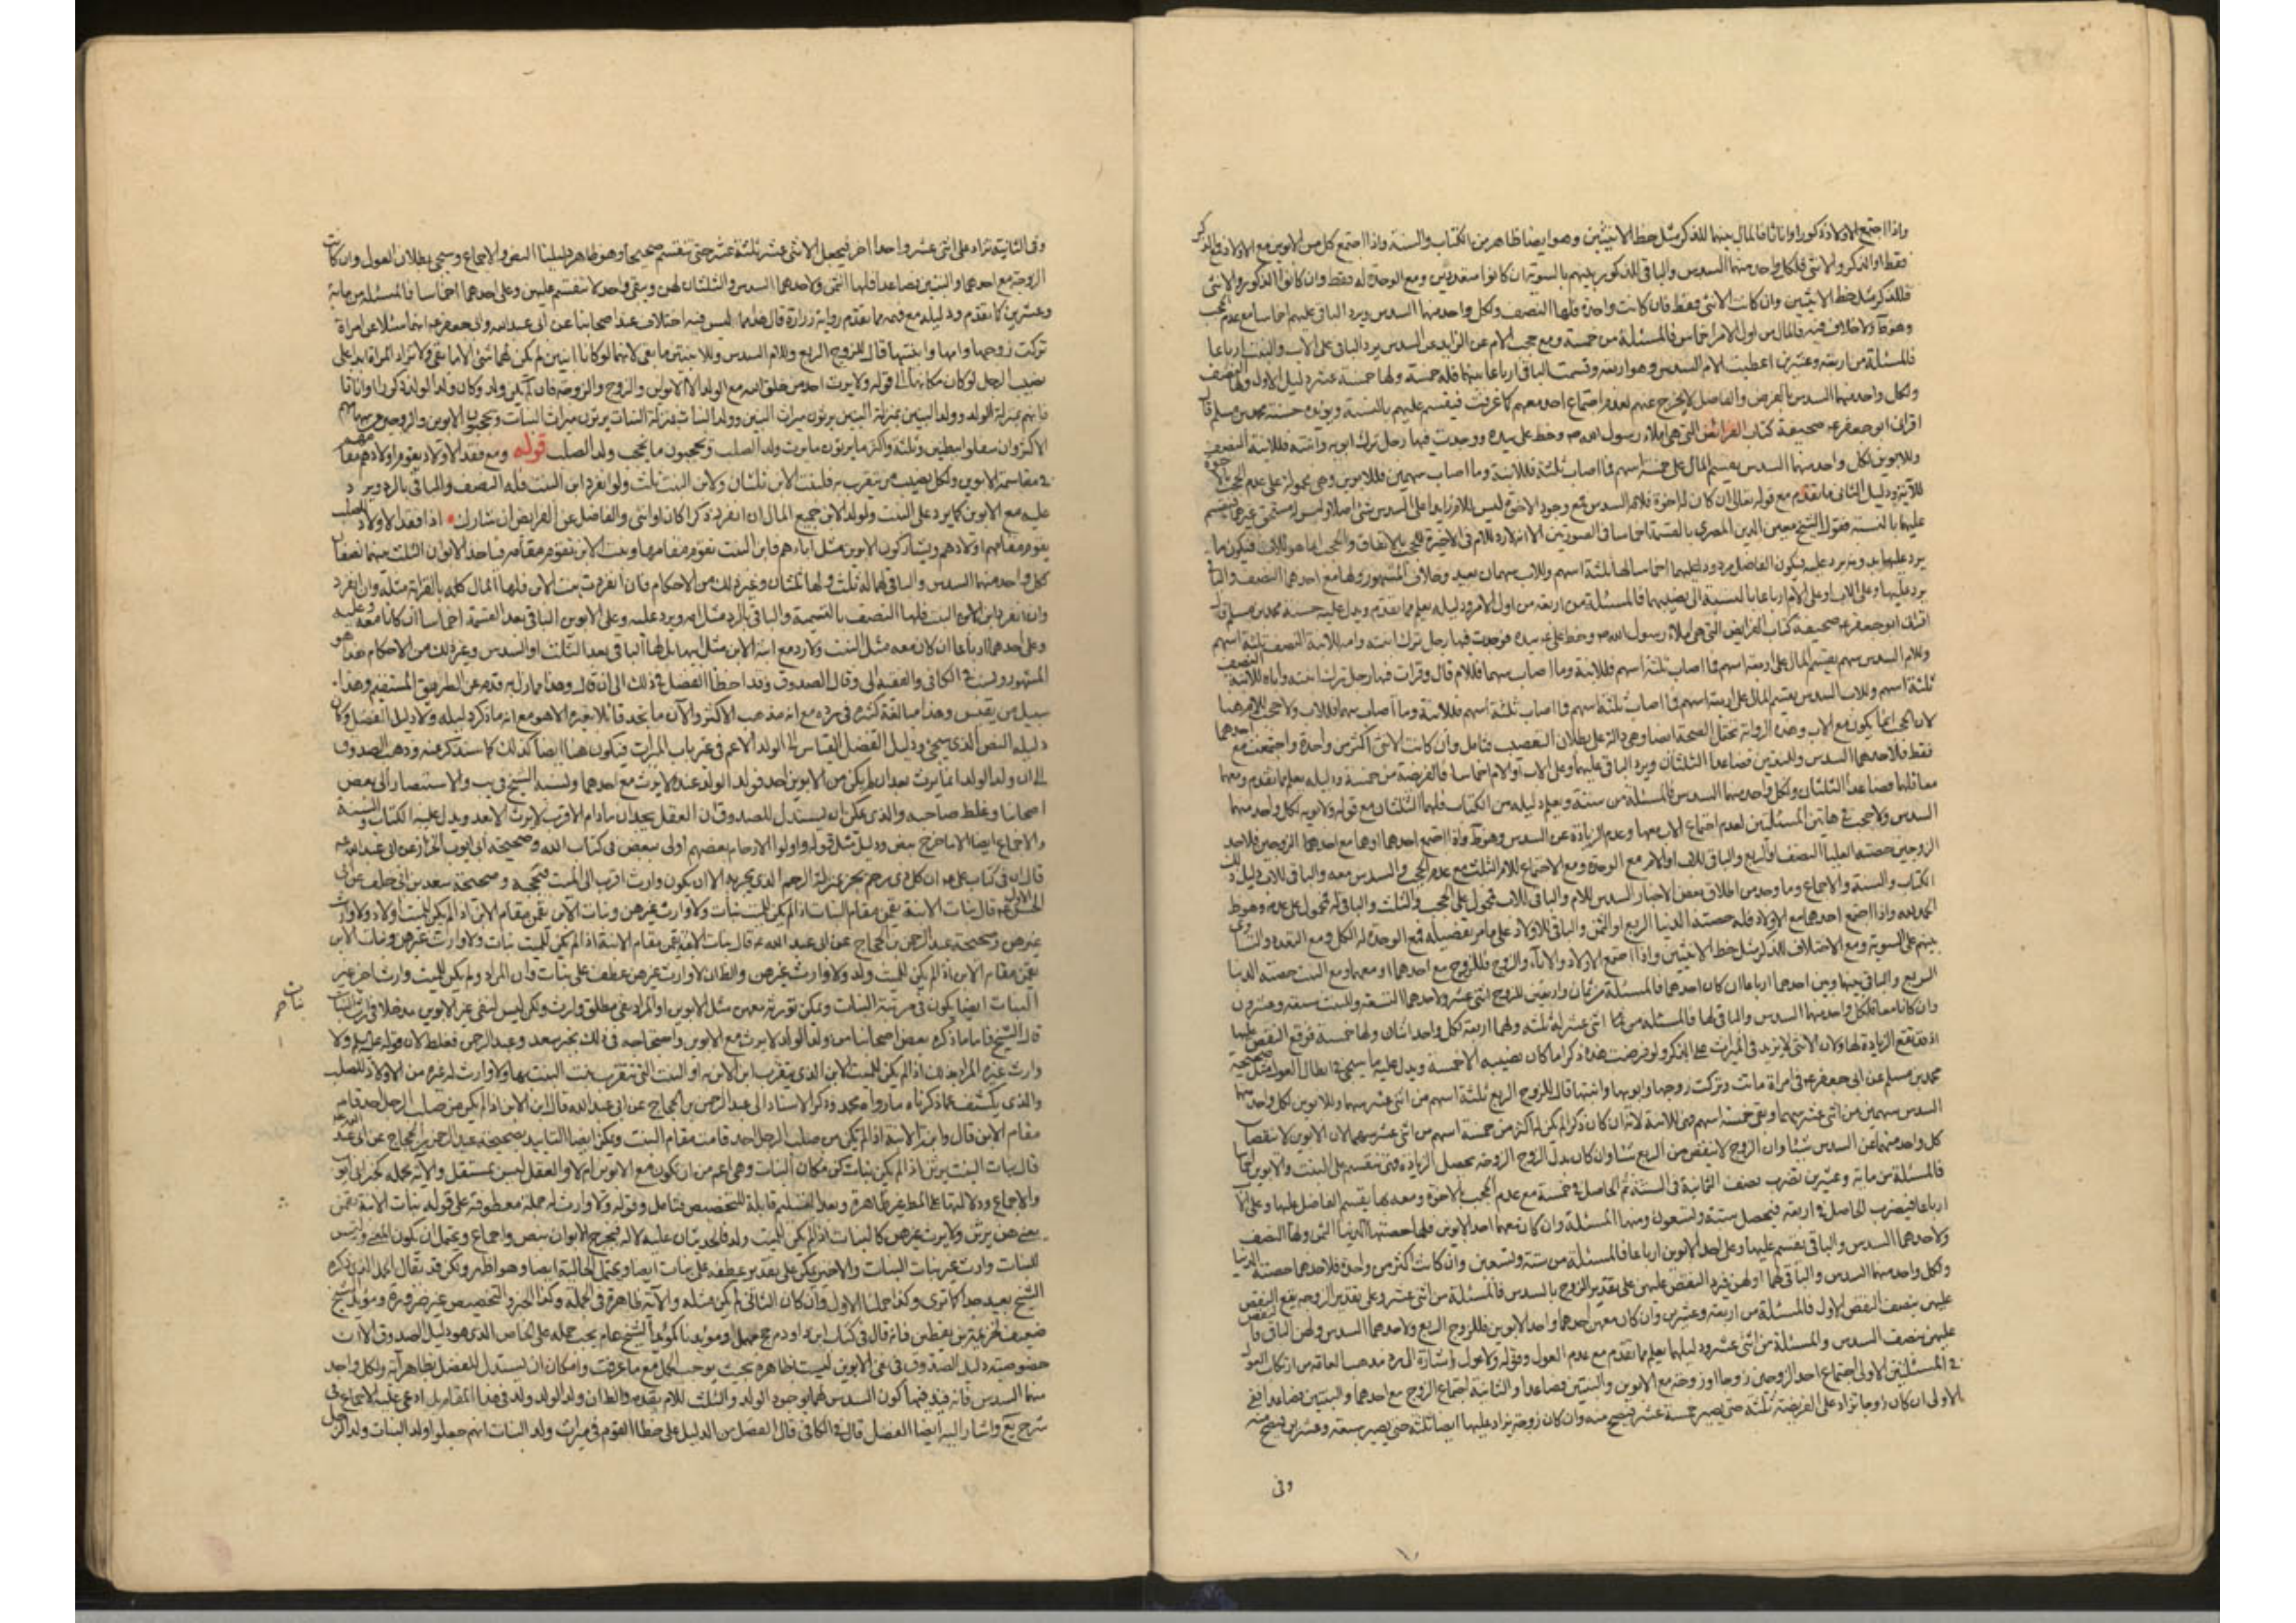 واذا اجتمع الاولاد ذكورا واناثا فالمال بينهما للذكر مثل حظ الانثيين وهو ايضا ظاهر من الكتاب والسنة واذا اجتمع كل من الابوين مع الاولاد فالذكر
فقط او الذكر والانثى فلكل واحد منهما السدس والباقى للذكور بينهم بالسوية ان كانوا متعددين ومع الوحدة له فقط وان كانوا الذكور والانثى
فللذكر مثل حظ الانثيين وان كانت الانثى فقط فان كانت واحدة فلها النصف ولكل واحد منهما السدس ويرد الباقى عليهم اخماسا مع عدم الحجب
فالمال من اول الامر اخماس فالمسئلة من خمسة ومع حجب الام عن الزايد عن السدس يرد الباقى على الاب والبنت ارباعا
فالمسئلة من اربعة وعشرين اعطيت الام السدس وهو اربعة وقسمت الباقى ارباعا بينهما فله خمسة ولها خمسة عشر دليل الاول ولها النصف
ولكل واحد منهما السدس بالفرض والفاضل لا يخرج عنهم لعدم اجتماع احد معهم كما عرفت فيقسم عليهم بالنسبة ويؤيده حسنة محمد بن مسلم قال
اقرانى ابو جعفر ع صحيفة كتاب الفرائض التى هى املاء رسول الله ص وخط على ع بيده ووجدت فيها رجل ترك ابويه وابنته فللابنة النصف
وللابوين لكل واحد منهما السدس يقسم المال على خمسة اسهم فما اصاب ثلثة فللابنة وما اصاب سهمين فللابوين وهى محمولة على عدم الحجب
ودليل الثانى ما تقدم مع قوله تعالى ان كان له اخوة فلامه السدس فمع وجود الاخوة ليس للام زايدا على السدس شئ اصلا
عليهما بالنسبة فقول الشيخ معين الدين المصرى بالقسمة اخماسا فى الصورتين
يرد عليها بد فيكون الفاضل مردودا عليهما اخماسا لها ثلثة اسهم وللاب سهمان بعيد وخلاف المشهور ولها مع احدهما النصف والباقى
يرد عليها وعلى الاب او على الام ارباعا بالنسبة الى نصيبهما فالمسئلة من اربعة من اول الامر ودليله يعلم مما تقدم ويدل عليه حسنة محمد بن مسلم قال
اقرانى ابو جعفر ع صحيفة كتاب الفرايض التى هى املاء رسول الله ص وخط على ع بيده فوجدت فيها رجل ترك ابنته وامه للابنة النصف ثلثة اسهم
وللام السدس سهم يقسم المال على اربعة اسهم فما اصاب ثلثة اسهم فللابنة وما اصاب سهما فللام قال وقرات فيها رجل ترك ابنته واباه للابنة النصف
ثلثة اسهم وللاب السدس يقسم المال على اربعة اسهم فما اصاب ثلثة اسهم فللابنة وما اصاب سهما فللاب ولا حجب للام هنا
لان الحجب انما يكون مع الاب وهذه الرواية تحتمل الصحة ايضا وهى دالة على بطلان التعصيب فتامل وان كانت الانثى اكثر من واحدة واجتمعت مع احدهما
فقط فلاحدهما السدس وللبنتين فصاعدا الثلثان ويرد الباقى عليهما وعلى الاب او الام اخماسا فالفريضة من خمسة ودليله يعلم مما تقدم ومعهما
معا فلهما فصاعدا الثلثان ولكل واحد منهما السدس فالمسئلة من ستة ويعلم دليله من الكتاب فلهما الثلثان مع قوله ولابويه لكل واحد منهما
السدس ولا حجب فى هاتين المسئلتين لعدم اجتماع الاب معها وعدم الزيادة عن السدس وهو ظ واذا اجتمع احدهما او هما مع احد الزوجين فلاحد
الزوجين حصته العليا النصف او الربع والباقى للاب او الام مع الوحدة ومع الاجتماع للام الثلث مع عدم الحجب والسدس معه والباقى للاب دليله
الكتاب والسنة والاجماع وما وجد من اطلاق بعض الاخبار السدس للام والباقى للاب محمول على الحجب والثلث والباقى له محمول على عدمه وهو ظ
الحمد لله واذا اجتمع احدهما مع الاولاد فله حصته الدنيا الربع او الثمن والباقى للاولاد على ما مر تفصيله فمع الوحدة له الكل ومع التعدد والتساوى
بينهم على السوية ومع الاختلاف للذكر مثل حظ الانثيين واذا اجتمع الاولاد والاباء والزوج فللزوج مع احدهما او معهما ومع البنت حصته الدنيا
الربع والباقى بينها وبين احدهما ارباعا ان كان احدهما فالمسئلة من ثمان واربعين للزوج اثنى عشر ولاحدهما التسعة وللبنت سبعة وعشرون
وان كانا معا فلكل واحد منهما السدس والباقى لها فالمسئلة من اثنى عشر له ثلثة ولهما اربعة لكل واحد اثنان ولها خمسة فوقع النقص عليها
محمد بن مسلم عن ابى جعفر ع فى امراة ماتت وتركت زوجها وابويها وابنتها قال للزوج الربع ثلثة اسهم من اثنى عشر سهما وللابوين لكل واحد منهما
السدس سهمين من اثنى عشر سهما وبقى خمسة اسهم فهى للابنة لانه ان كان ذكرا لم يكن له اكثر من خمسة اسهم من اثنى عشر سهما لان الابوين لا ينقصان
كل واحد منهما عن السدس شيئا وان الزوج لا ينقص من الربع شئا وان كان بدل الزوج الزوجة يحصل الزيادة
فالمسئلة من مائة وعشرين تضرب نصف الثمانية فى الستة ثم الحاصل فى خمسة مع عدم الحجب بالاخوة ومعه بها يقسم الفاضل عليها وعلى الاب
ارباعا فيضرب الحاصل فى اربعة فيحصل ستة وتسعون ومنها المسئلة وان كان معهما احد الابوين فلها حصتها الدنيا الثمن ولها النصف
ولاحدهما السدس والباقى يقسم عليها وعلى احد الابوين ارباعا فالمسئلة من ستة وتسعين وان كانت اكثر من واحدة فلاحدهما حصته الدنيا
ولكل واحد منهما السدس والباقى لهما او لهن فيرد النقص عليهن على تقدير الزوج بالسدس فالمسئلة من اثنى عشر وعلى تقدير الزوجة يقع النقص
عليهن بنصف النقص الاول فالمسئلة من اربعة وعشرين وان كان معهن احدهما واحد الابوين فللزوج الربع ولاحدهما السدس ولهن الباقى
عليهن بنصف السدس والمسئلة من اثنى عشر ودليلهما يعلم مما تقدم مع عدم العول وقوله ولا عول اشارة الى رد مذهب العامة من ارتكاب العول
فى المسئلتين الاولى اجتماع احد الزوجين زوجا او زوجة مع الابوين والبنتين فصاعدا والثانية اجتماع الزوج مع احدهما والبنتين فصاعدا ففى
الاولى ان كان زوجا تزاد على الفريضة ثلثة حتى يصير خمسة عشر فيصح منه وان كان زوجة يزاد عليها ايضا ثلثة حتى يصير سبعة وعشرين فيصح منه
وفى
وفى الثانية تزاد على اثنى عشر واحدا اخر فيجعل الاثنى عشر ثلثة عشر حتى تنقسم صحيحا وهو ظاهر دليلنا النص والاجماع وسيجئ بطلان العول وان كانت
الزوجة مع احدهما والبنتين فصاعدا فلها الثمن ولاحدهما السدس والثلثان لهن ويبقى واحد لا ينقسم عليهن وعلى احدهما اخماسا فالمسئلة من مائة
وعشرين كما تقدم ودليله مع فهمه مما تقدم رواية زرارة قال هذا مما ليس فيه اختلاف عند اصحابنا عن ابى عبد الله وابى جعفر ع انهما سئلا عن امراة
تركت زوجها وامها وابنتيها قال للزوج الربع وللام السدس وللابنتين ما بقى لانهما لو كانا ابنين لم يكن لهما شئ الا ما بقى ولا تزاد المراة ابدا على
نصيب الرجل لو كان مكانها الى قوله ولا يرث احد من خلق الله مع الولد الا الابوين والزوج والزوجة فان لم يكن ولد وكان ولد الولد ذكورا واناثا
فانهم بمنزلة الولد وولد البنين بمنزلة البنين يرثون ميراث البنين وولد البنات بمنزلة البنات يرثون ميراث البنات ويحجبون الابوين والزوجين عن سهامهم
الاكثر وان سفلوا ببطنين وثلثة واكثر ما يرثون ما يرث ولد الصلب ويحجبون ما يحجب ولد الصلب قوله ومع فقد الاولاد يقوم اولادهم مقامهم
فى مقاسمة الابوين ولكل نصيب من يتقرب به فلبنت الابن ثلثان ولابن البنت ثلث ولو انفرد ابن البنت فله النصف والباقى بالرد ويرد
عليه مع الابوين كما يرد على البنت ولولد الابن جميع المال ان انفرد ذكرا كان او انثى والفاضل عن الفرايض ان شارك اذا فقد الاولاد للصلب
يقوم مقامهم اولادهم ويشاركون الابوين مثل آبائهم فابن البنت تقوم مقامها وبنت الابن تقوم مقامه فياخذ الابوان الثلث بينهما نصفان
كل واحد منهما السدس والباقى لهما له ثلث ولها ثلثان وغير ذلك من الاحكام فان انفردت بنت الابن فلها المال كله بالقرابة مثله وان انفرد
وان انفرد ابن الابن البنت فلها النصف بالتسمية والباقى بالرد مثل امه ويرد عليه وعلى الابوين الباقى بعد القسمة اخماسا ان كانا معه وعليه
وعلى احدهما ارباعا ان كان معه مثل البنت ولا رد مع ابنة الابن مثل ابيها بل لها الباقى بعد الثلث او السدس وغير ذلك من الاحكام هذا هو
المشهور ونسب فى الكافى والفقيه الى وقال الصدوق وقد اخطا الفضل فى ذلك الى ان قال وهذا مما زل به قدمه عن الطريق المستقيم وهذا
سبيل من يقيس وهذا مبالغة كثيرة فى رده مع انه مذهب الاكثر والآن ما نجد قائلا بغيره الا هو مع انه ما ذكر دليله ولا دليل الفضل وكان
دليله النص الذى سيجئ ودليل الفضل القياس الى الولد الاعم فى غير باب الميراث فيكون هنا ايضا كذلك كما سنذكر عنه وذهب الصدوق
الى ان ولد الولد انما يرث بعد ان لم يكن من الابوين احد فولد الولد عنده لا يرث مع احدهما ونسبه الشيخ فى يب والاستبصار الى بعض
اصحابنا وغلط صاحبه والذى يمكن ان يستدل للصدوق ان العقل يجد ان ما دام الاقرب لا يرث الابعد ويدل عليه الكتاب والسنة
والاجماع ايضا الا ما خرج بنص ودليل مثل قوله واولوا الارحام بعضهم اولى ببعض فى كتاب الله وصحيحة ابى ايوب الخزاز عن ابى عبد الله ع
قال ان فى كتاب على ع ان كل ذى رحم بمنزلة الرحم الذى يجر به الا ان يكون وارث اقرب الى الميت فيحجبه وصحيحة سعد بن ابى خلف عن ابى
الحسن الاول ع قال بنات الابنة يقمن مقام البنات اذا لم يكن للميت بنات ولا وارث غيرهن وبنات الابن يقمن مقام الابن اذا لم يكن للميت اولاد ولا وارث
غيرهن وصحيحة عبد الرحمن بن الحجاج عن ابى عبد الله ع قال بنات الابنة يقمن مقام الابنة اذا لم يكن للميت بنات ولا وارث غيرهن وبنات الابن
يقمن مقام الابن اذا لم يكن للميت ولد ولا وارث غيرهن والظ ان لا وارث غيرهن عطف على بنات وان المراد ولم يكن للميت وارث اخر غير
البنات ايضا يكون فى مرتبة البنات ويمكن توريثه معهن مثل الابوين
قال الشيخ فاما ما ذكره بعض اصحابنا من ان ولد الولد لا يرث مع الابوين واحتجاجه فى ذلك بخبر سعد وعبد الرحمن فغلط لان قوله ع ولا
وارث غيره المراد بذلك اذا لم يكن للميت الابن الذى يتقرب ابن الابن به او البنت التى تتقرب بنت البنت بها ولا وارث له غيره من الاولاد للصلب
والذى يكشف عما ذكرناه ما رواه محمد وذكر الاسناد الى عبد الرحمن بن الحجاج عن ابى عبد الله قال ابن الابن اذا لم يكن من صلب الرجل احد قام
مقام الابن قال وابنة الابنة اذا لم يكن من صلب الرجل احد قامت مقام البنت ويمكن ايضا التاييد بصحيحة عبد الرحمن بن الحجاج عن ابى عبد الله ع
قال بنات البنت يرثن اذا لم يكن بنات كن مكان البنات وهى اعم من ان تكون مع الابوين ام لا والعقل ليس بمستقل والآية مجملة
والاجماع ودلالتها على المط غير ظاهرة وبعد التسليم قابلة للتخصيص فتامل وقوله ولا وارث له جملة معطوفة على قوله بنات الابنة يقمن
يعنى هن يرثن ولا يرث غيرهن كالبنات اذا لم يكن للميت ولد فالحديثان عليه لا له فيخرج الابوان بنص واجماع ويحتمل ان يكون المعنى وليس
للبنات وارث غير بنات البنات والاخير يمكن على تقدير عطفه على بنات ايضا ويحتمل الحالية ايضا وهو اظهر ولكن قد يقال الحمل الذى ذكره
الشيخ بعيد جدا كما ترى وكذا حملنا الاول وان كان الثانى لم يكن مثله والآية ظاهرة فى الجملة وكذا الخبر والتخصيص غير ضرورة ومؤيد الشيخ
ضعيف لخزيمة بن يقطين فانه قال فى كتاب ابن داود مهمل ومؤيدنا كمؤيد الشيخ عام يجب حمله على الخاص الذى هو دليل الصدوق الا ان
خصوصية دليل الصدوق فى نفى الابوين ليست ظاهرة بحيث يوجب الحمل مع ما عرفت وامكان ان يستدل للفضل بظاهر آية ولكل واحد
منهما السدس فانه يفيد فيهما كون السدس لهما بوجود الولد والثلث للام بعدمه والظ ان ولد الولد ولد فى هذا المقام بل ادعى عليه الاجماع فى
شرح يع واشار اليه ايضا الفضل قال فى الكافى قال الفضل من الدليل على خطا القوم فى ميراث ولد البنات انهم جعلوا ولد البنات ولد الرجل